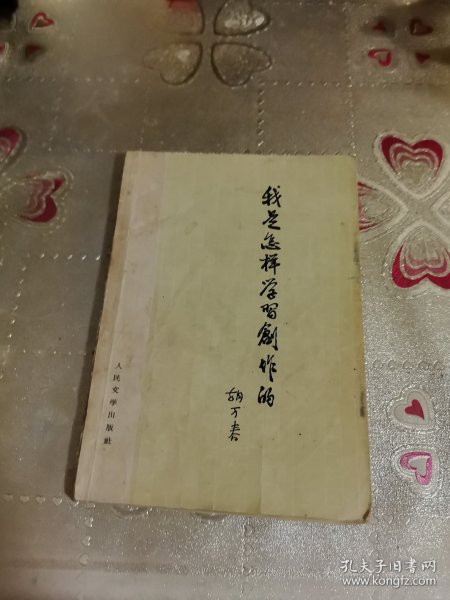 我是怎样学习創作的
胡万春
人民文學出版社
孔夫子旧书网
www.kongfz.com